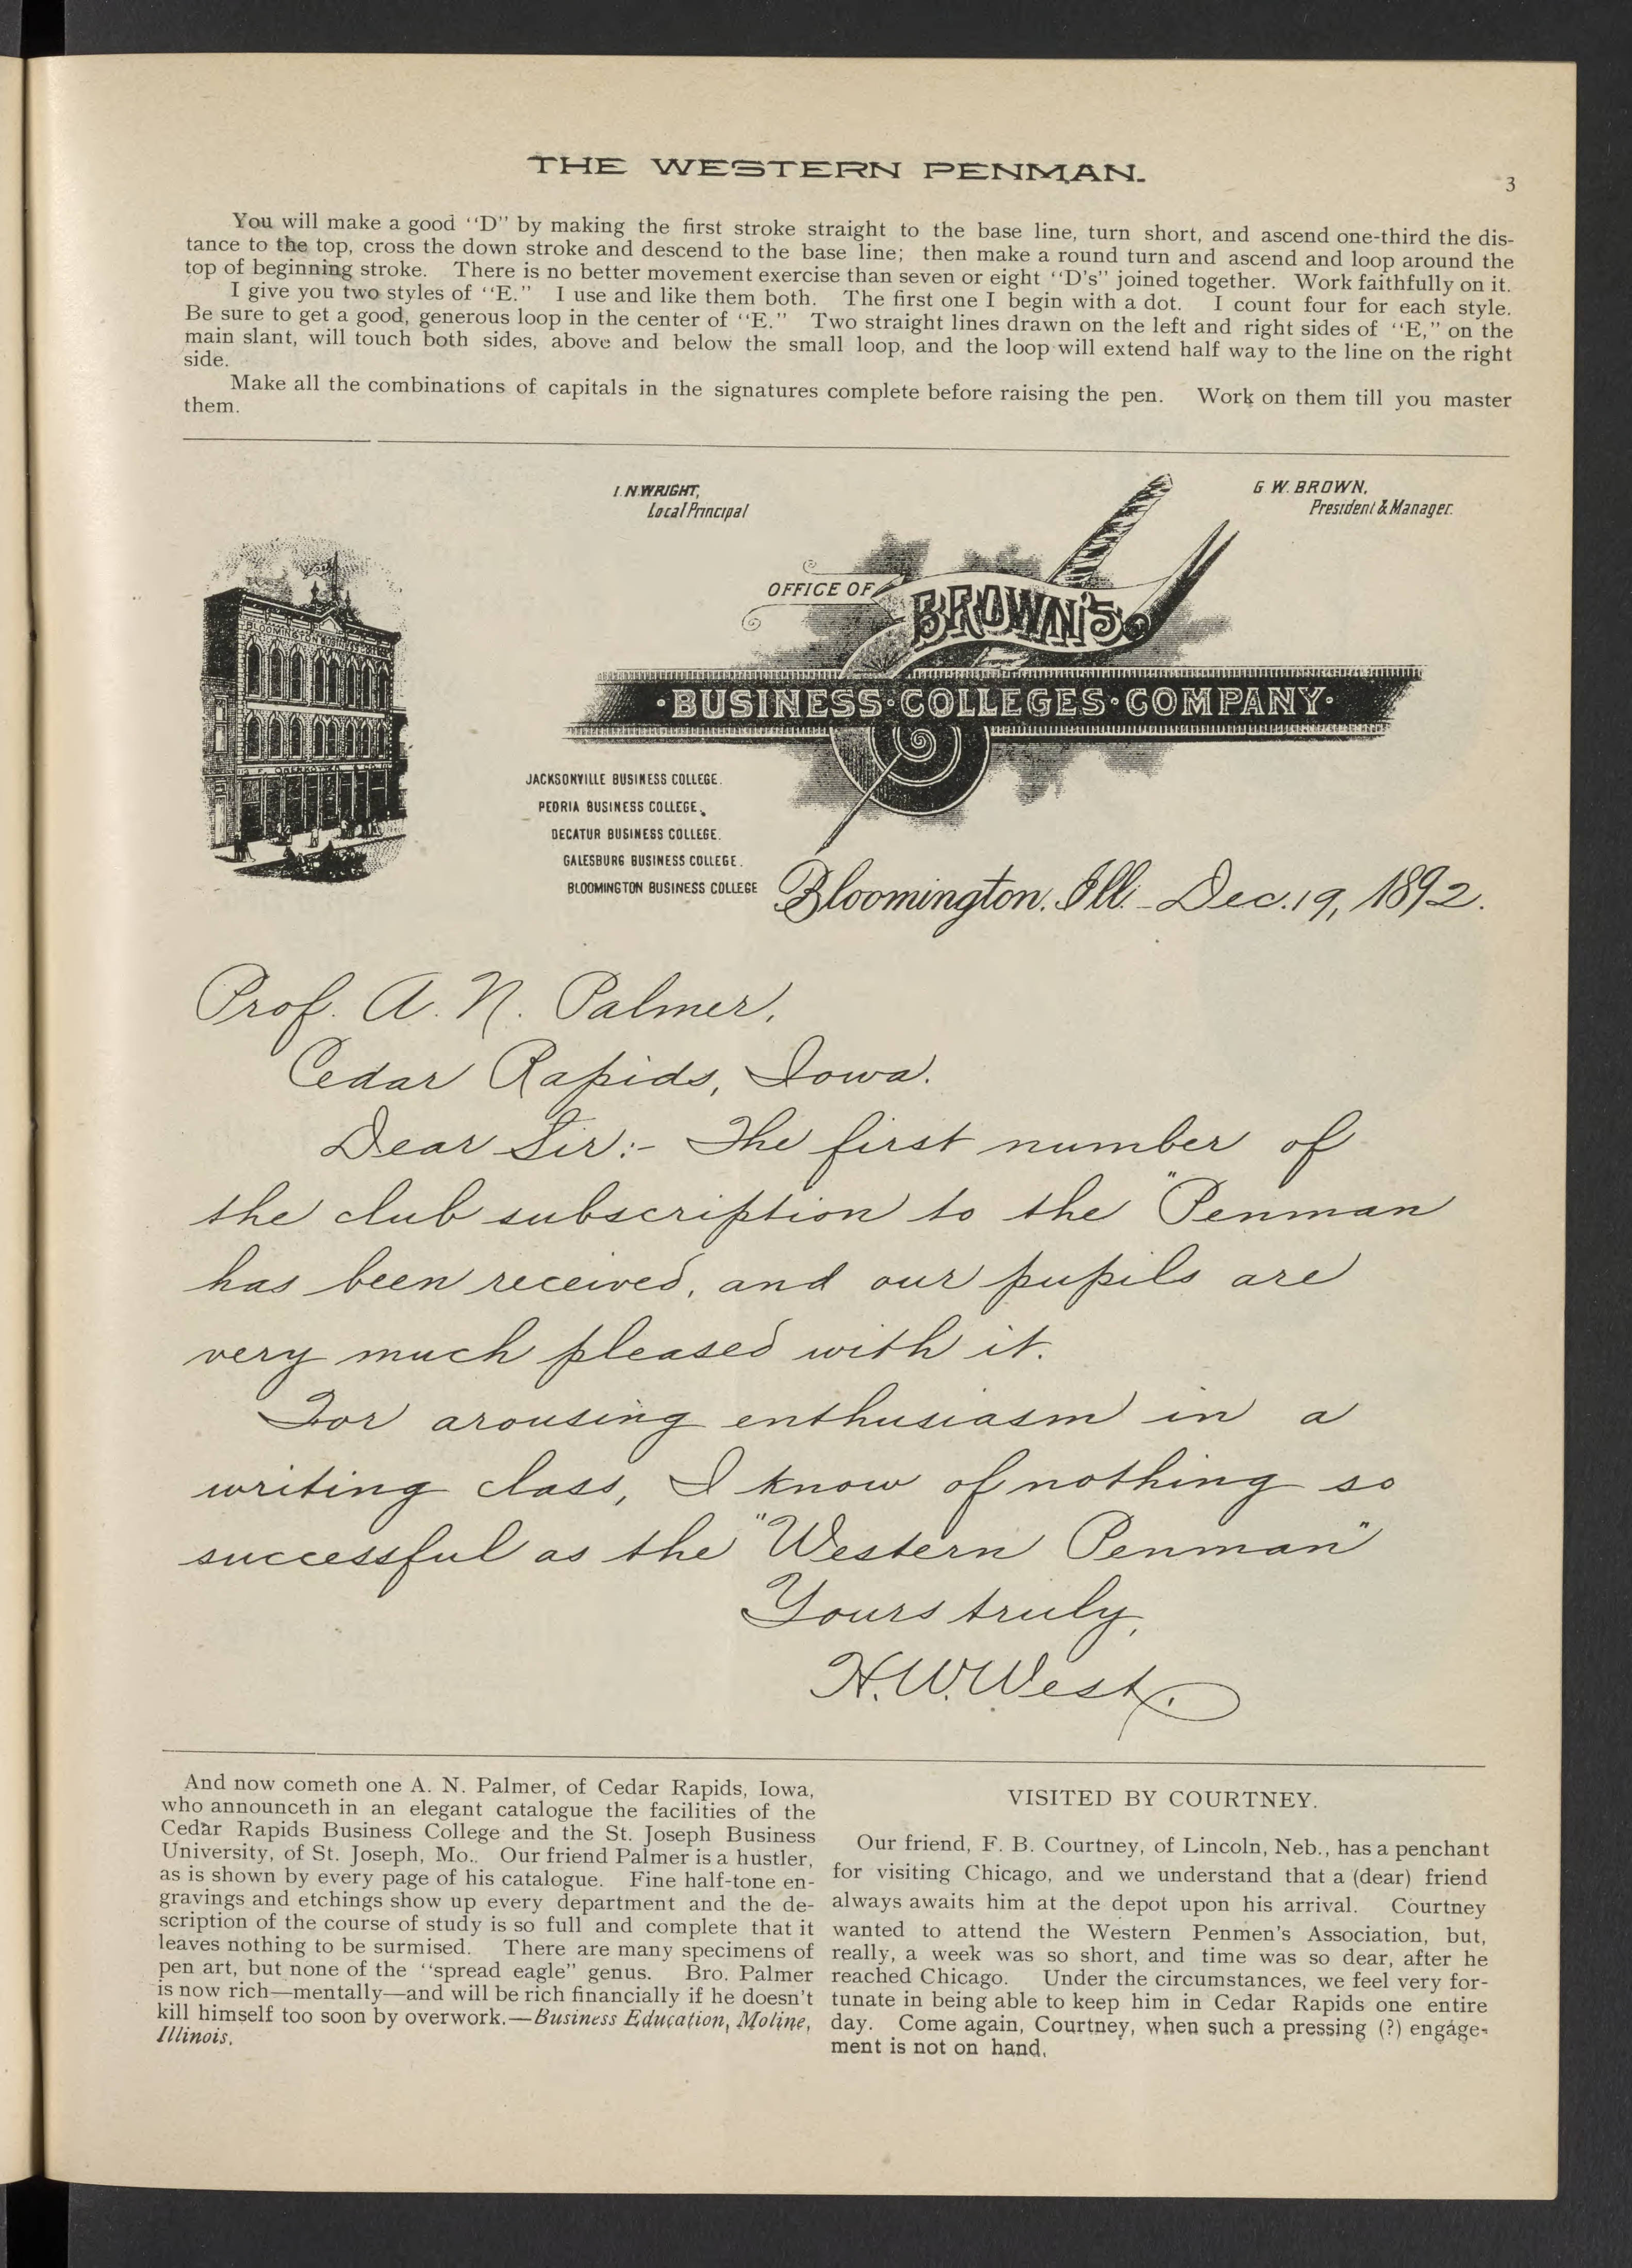 THE WESTERN PENMAN.
3
You will make a good "D" by making the first stroke straight to the base line, turn short, and ascend one-third the dis-
tance to the top, cross the down stroke and descend to the base line; then make a round turn and ascend and loop around the
top of beginning stroke. There is no better movement exercise than seven or eight "D's" joined together. Work faithfully on it.
I give you two styles of "E." I use and like them both. The first one I begin with a dot. I count four for each style.
Be sure to get a good, generous loop in the center of "E." Two straight lines drawn on the left and right sides of "E," on the
main slant, will touch both sides, above and below the small loop, and the loop will extend half way to the line on the right
side.
Make all the combinations of capitals in the signatures complete before raising the pen. Work on them till you master
them.
I. N. WRIGHT,
Local Principal
G. W. BROWN,
President & Manager.
OFFICE OF
BROWN'S
·BUSINESS·COLLEGES·COMPANY·
BLOOMINGTON
JACKSONVILLE BUSINESS COLLEGE.
PEORIA BUSINESS COLLEGE.
DECATUR BUSINESS COLLEGE.
GALESBURG BUSINESS COLLEGE.
BLOOMINGTON BUSINESS COLLEGE
Bloomington. Ill. - Dec. 19, 1892.
Prof. A. N. Palmer,
Cedar Rapids, Iowa.
Dear Sir:- The first number of
the club subscription to the "Penman
has been received, and our pupils are
very much pleased with it.
For arousing enthusiasm in a
writing class, I know of nothing so
successful as the "Western Penman"
Yours truly,
H. W. West.
And now cometh one A. N. Palmer, of Cedar Rapids, Iowa,
who announceth in an elegant catalogue the facilities of the
Cedar Rapids Business College and the St. Joseph Business
University, of St. Joseph, Mo.. Our friend Palmer is a hustler,
as is shown by every page of his catalogue. Fine half-tone en-
gravings and etchings show up every department and the de-
scription of the course of study is so full and complete that it
leaves nothing to be surmised. There are many specimens of
pen art, but none of the "spread eagle" genus. Bro. Palmer
is now rich—mentally—and will be rich financially if he doesn't
kill himself too soon by overwork.—Business Education, Moline,
Illinois.
VISITED BY COURTNEY.
Our friend, F. B. Courtney, of Lincoln, Neb., has a penchant
for visiting Chicago, and we understand that a (dear) friend
always awaits him at the depot upon his arrival. Courtney
wanted to attend the Western Penmen's Association, but,
really, a week was so short, and time was so dear, after he
reached Chicago. Under the circumstances, we feel very for-
tunate in being able to keep him in Cedar Rapids one entire
day. Come again, Courtney, when such a pressing (?) engage-
ment is not on hand.